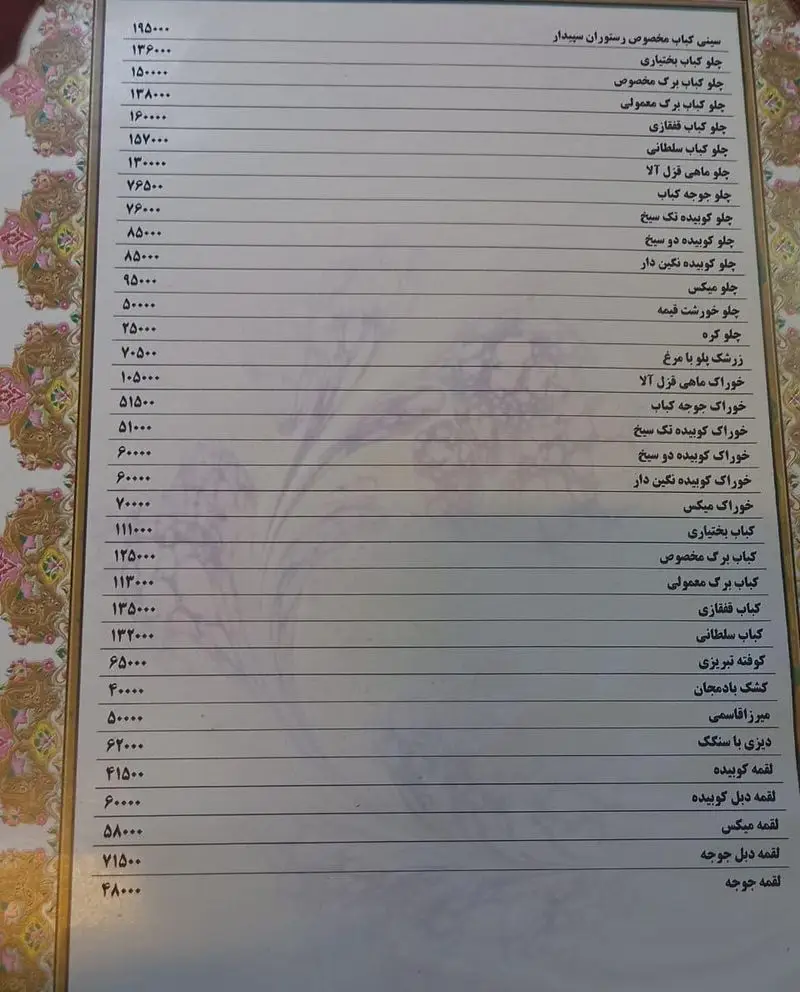 سینی کباب مخصوص رستوران سپیدار ۱۹۵۰۰۰
چلو کباب بختیاری ۱۳۶۰۰۰
چلو کباب برگ مخصوص ۱۵۰۰۰۰
چلو کباب برگ معمولی ۱۳۸۰۰۰
چلو کباب قفقازی ۱۶۰۰۰۰
چلو کباب سلطانی ۱۵۷۰۰۰
چلو ماهی قزل آلا ۱۳۰۰۰۰
چلو جوجه کباب ۷۶۵۰۰
چلو کوبیده تک سیخ ۷۶۰۰۰
چلو کوبیده دو سیخ ۸۵۰۰۰
چلو کوبیده نگین دار ۸۵۰۰۰
چلو میکس ۹۵۰۰۰
چلو خورشت قیمه ۵۰۰۰۰
چلو کره ۲۵۰۰۰
زرشک پلو با مرغ ۷۰۵۰۰
خوراک ماهی قزل آلا ۱۰۵۰۰۰
خوراک جوجه کباب ۵۱۵۰۰
خوراک کوبیده تک سیخ ۵۱۰۰۰
خوراک کوبیده دو سیخ ۶۰۰۰۰
خوراک کوبیده نگین دار ۶۰۰۰۰
خوراک میکس ۷۰۰۰۰
کباب بختیاری ۱۱۱۰۰۰
کباب برگ مخصوص ۱۲۵۰۰۰
کباب برگ معمولی ۱۱۳۰۰۰
کباب قفقازی ۱۳۵۰۰۰
کباب سلطانی ۱۳۲۰۰۰
کوفته تبریزی ۶۵۰۰۰
کشک بادمجان ۴۰۰۰۰
میرزاقاسمی ۵۰۰۰۰
دیزی با سنگک ۶۲۰۰۰
لقمه کوبیده ۴۱۵۰۰
لقمه دبل کوبیده ۶۰۰۰۰
لقمه میکس ۵۸۰۰۰
لقمه دبل جوجه ۷۱۵۰۰
لقمه جوجه ۴۸۰۰۰